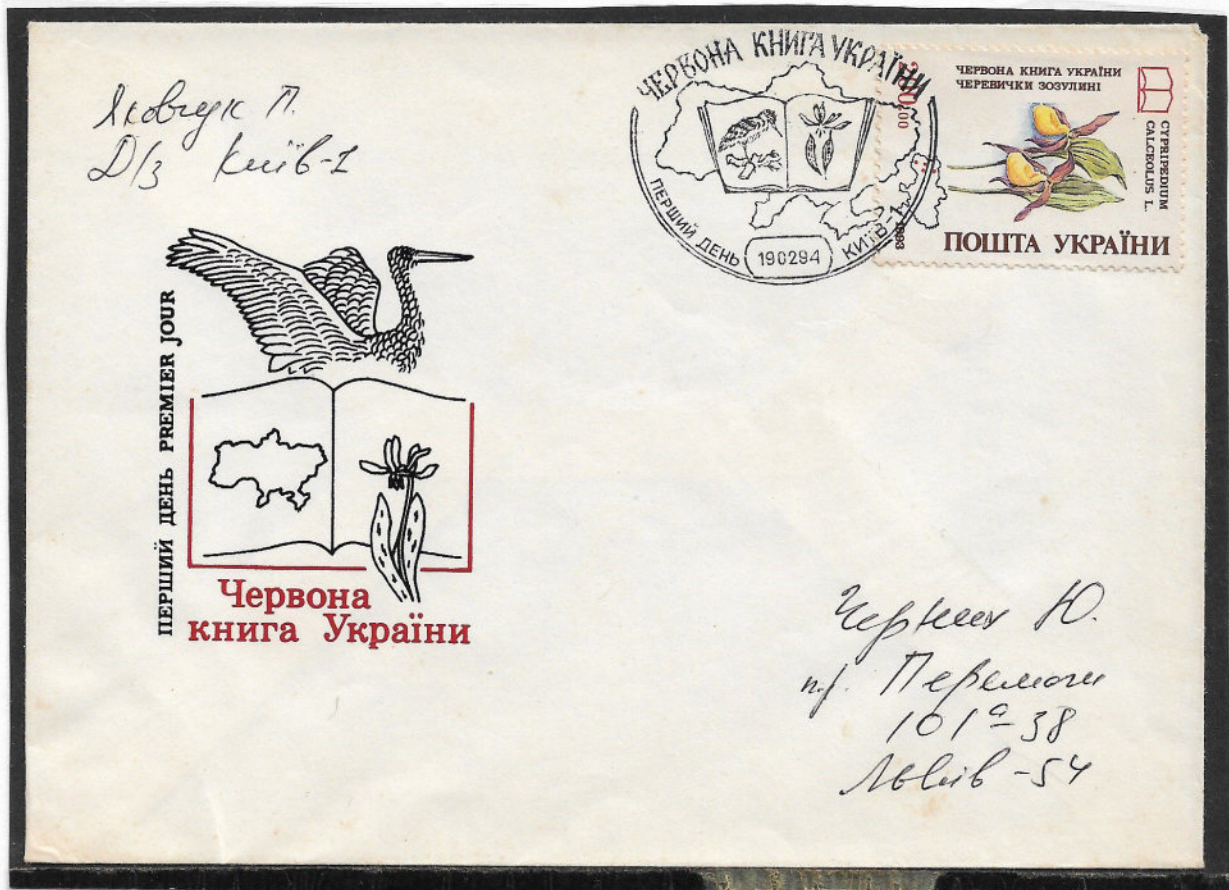 Яковчук П.
Д/з Київ-1
ЧЕРВОНА КНИГА УКРАЇНИ
ПЕРШИЙ ДЕНЬ
190294
КИЇВ-1
ЧЕРВОНА КНИГА УКРАЇНИ
ЧЕРЕВИЧКИ ЗОЗУЛИНІ
CYPRIPEDIUM
CALCEOLUS L.
1993
ПОШТА УКРАЇНИ
ПЕРШИЙ ДЕНЬ PREMIER JOUR
Червона
книга України
Черних Ю.
пр. Перемоги
101а-38
Львів-54